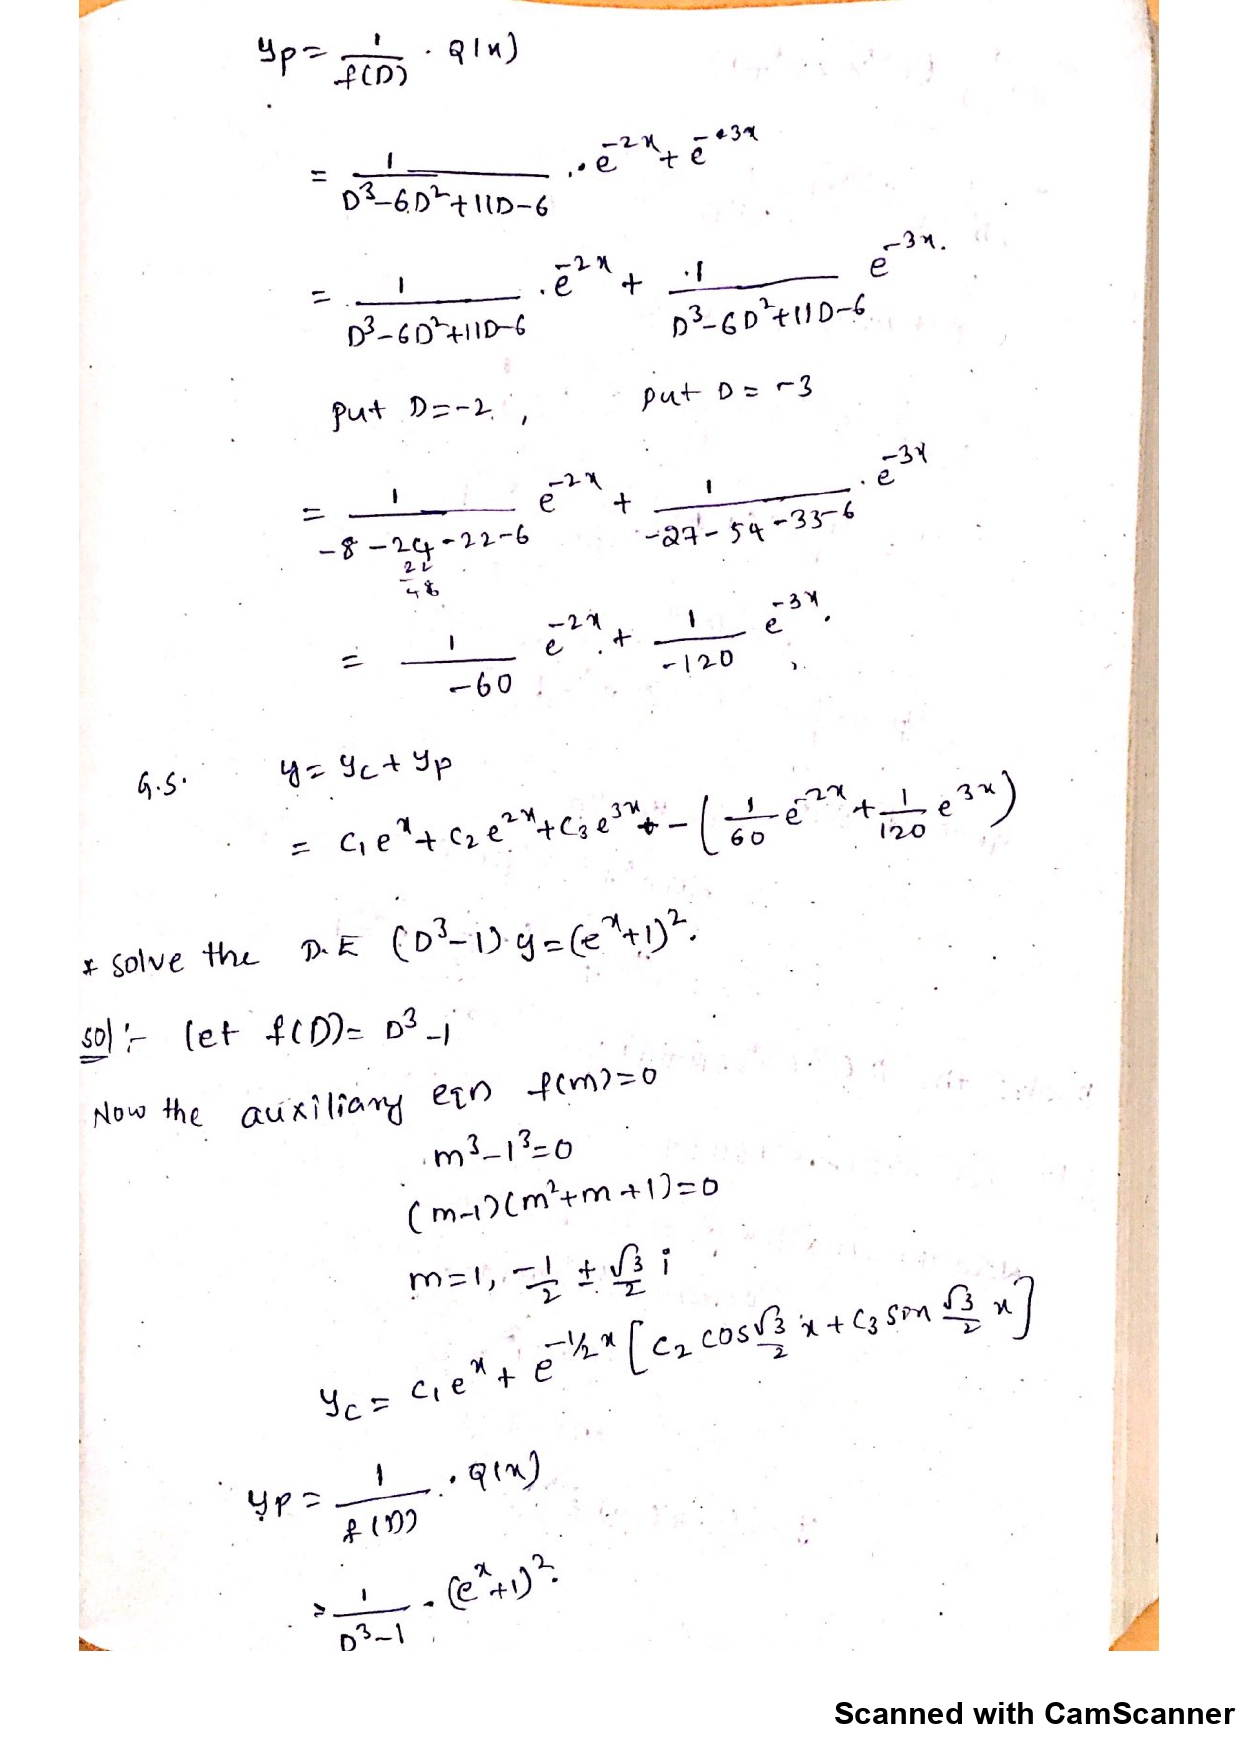 yp = 1/f(D) . Q(x)
= 1/(D³-6D²+11D-6) . e^-2x + e^-3x
= 1/(D³-6D²+11D-6) . e^-2x + 1/(D³-6D²+11D-6) e^-3x.
put D=-2, put D = -3
= 1/(-8-24-22-6) e^-2x + 1/(-27-54-33-6) . e^-3x
22
48
= 1/-60 e^-2x + 1/-120 e^-3x.
G.S. y = yc + yp
= c₁e^x + c₂e^2x + c₃e^3x + - (1/60 e^-2x + 1/120 e^3x)
* solve the D.E (D³-1) y = (e^x+1)².
sol:- let f(D) = D³-1
Now the auxiliary eqn f(m)=0
m³-1³=0
(m-1)(m²+m+1)=0
m=1, -1/2 ± √3/2 i
yc = c₁e^x + e^-1/2x [c₂ cos √3/2 x + c₃ sin √3/2 x]
yp = 1/f(D) . Q(x)
= 1/(D³-1) . (e^x+1)².
Scanned with CamScanner